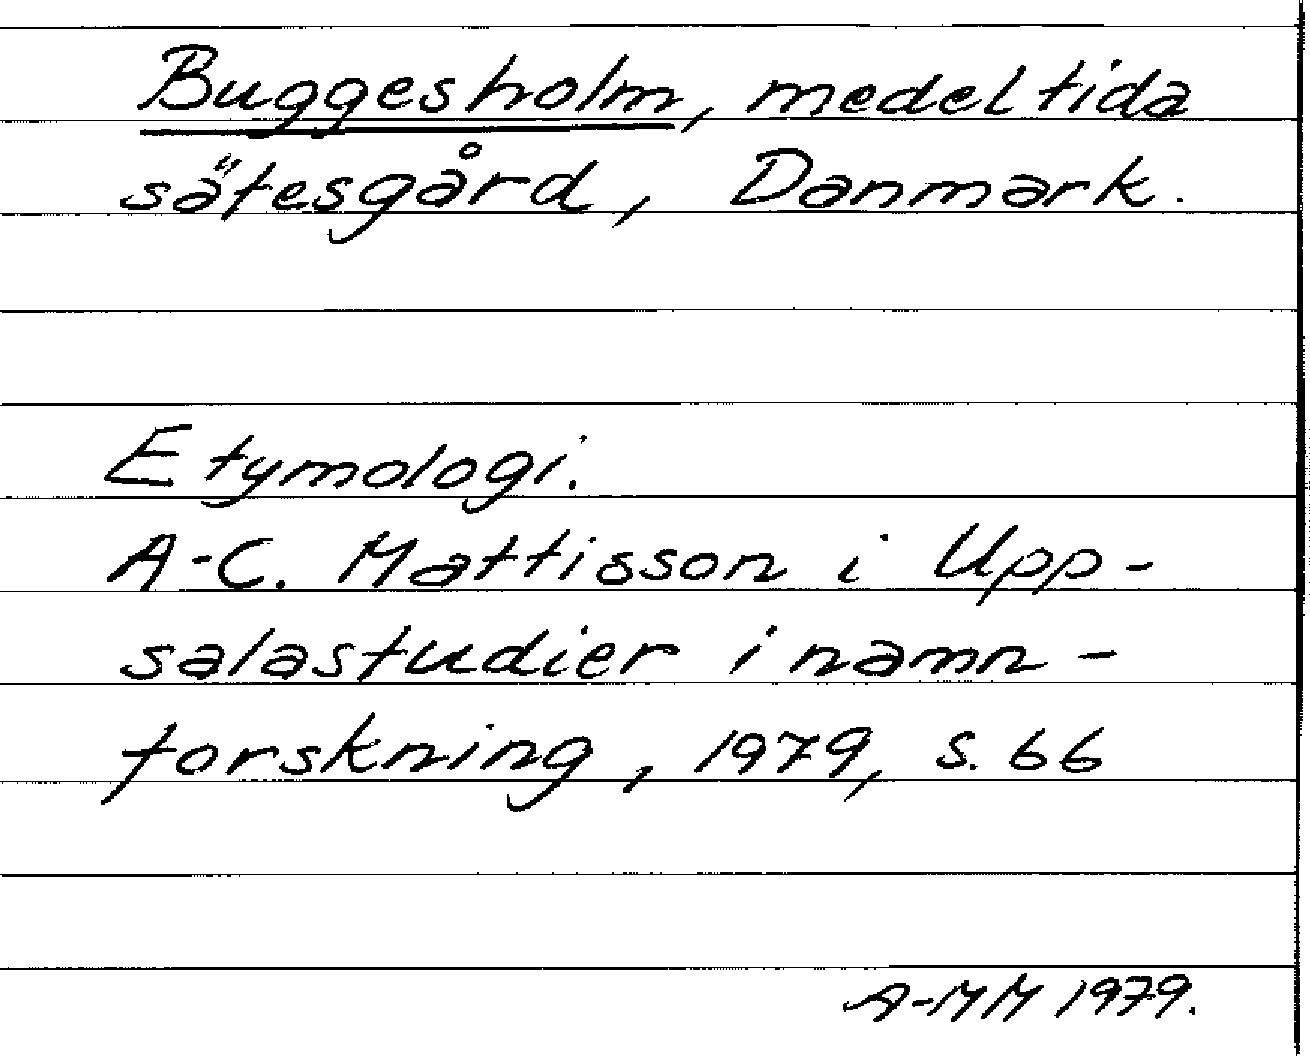 Buggesholm, medeltida
sätesgård, Danmark.
Etymologi.
A-C. Mattisson i Upp-
salastudier i namn-
forskning, 1979, s. 66
A-MM 1979.